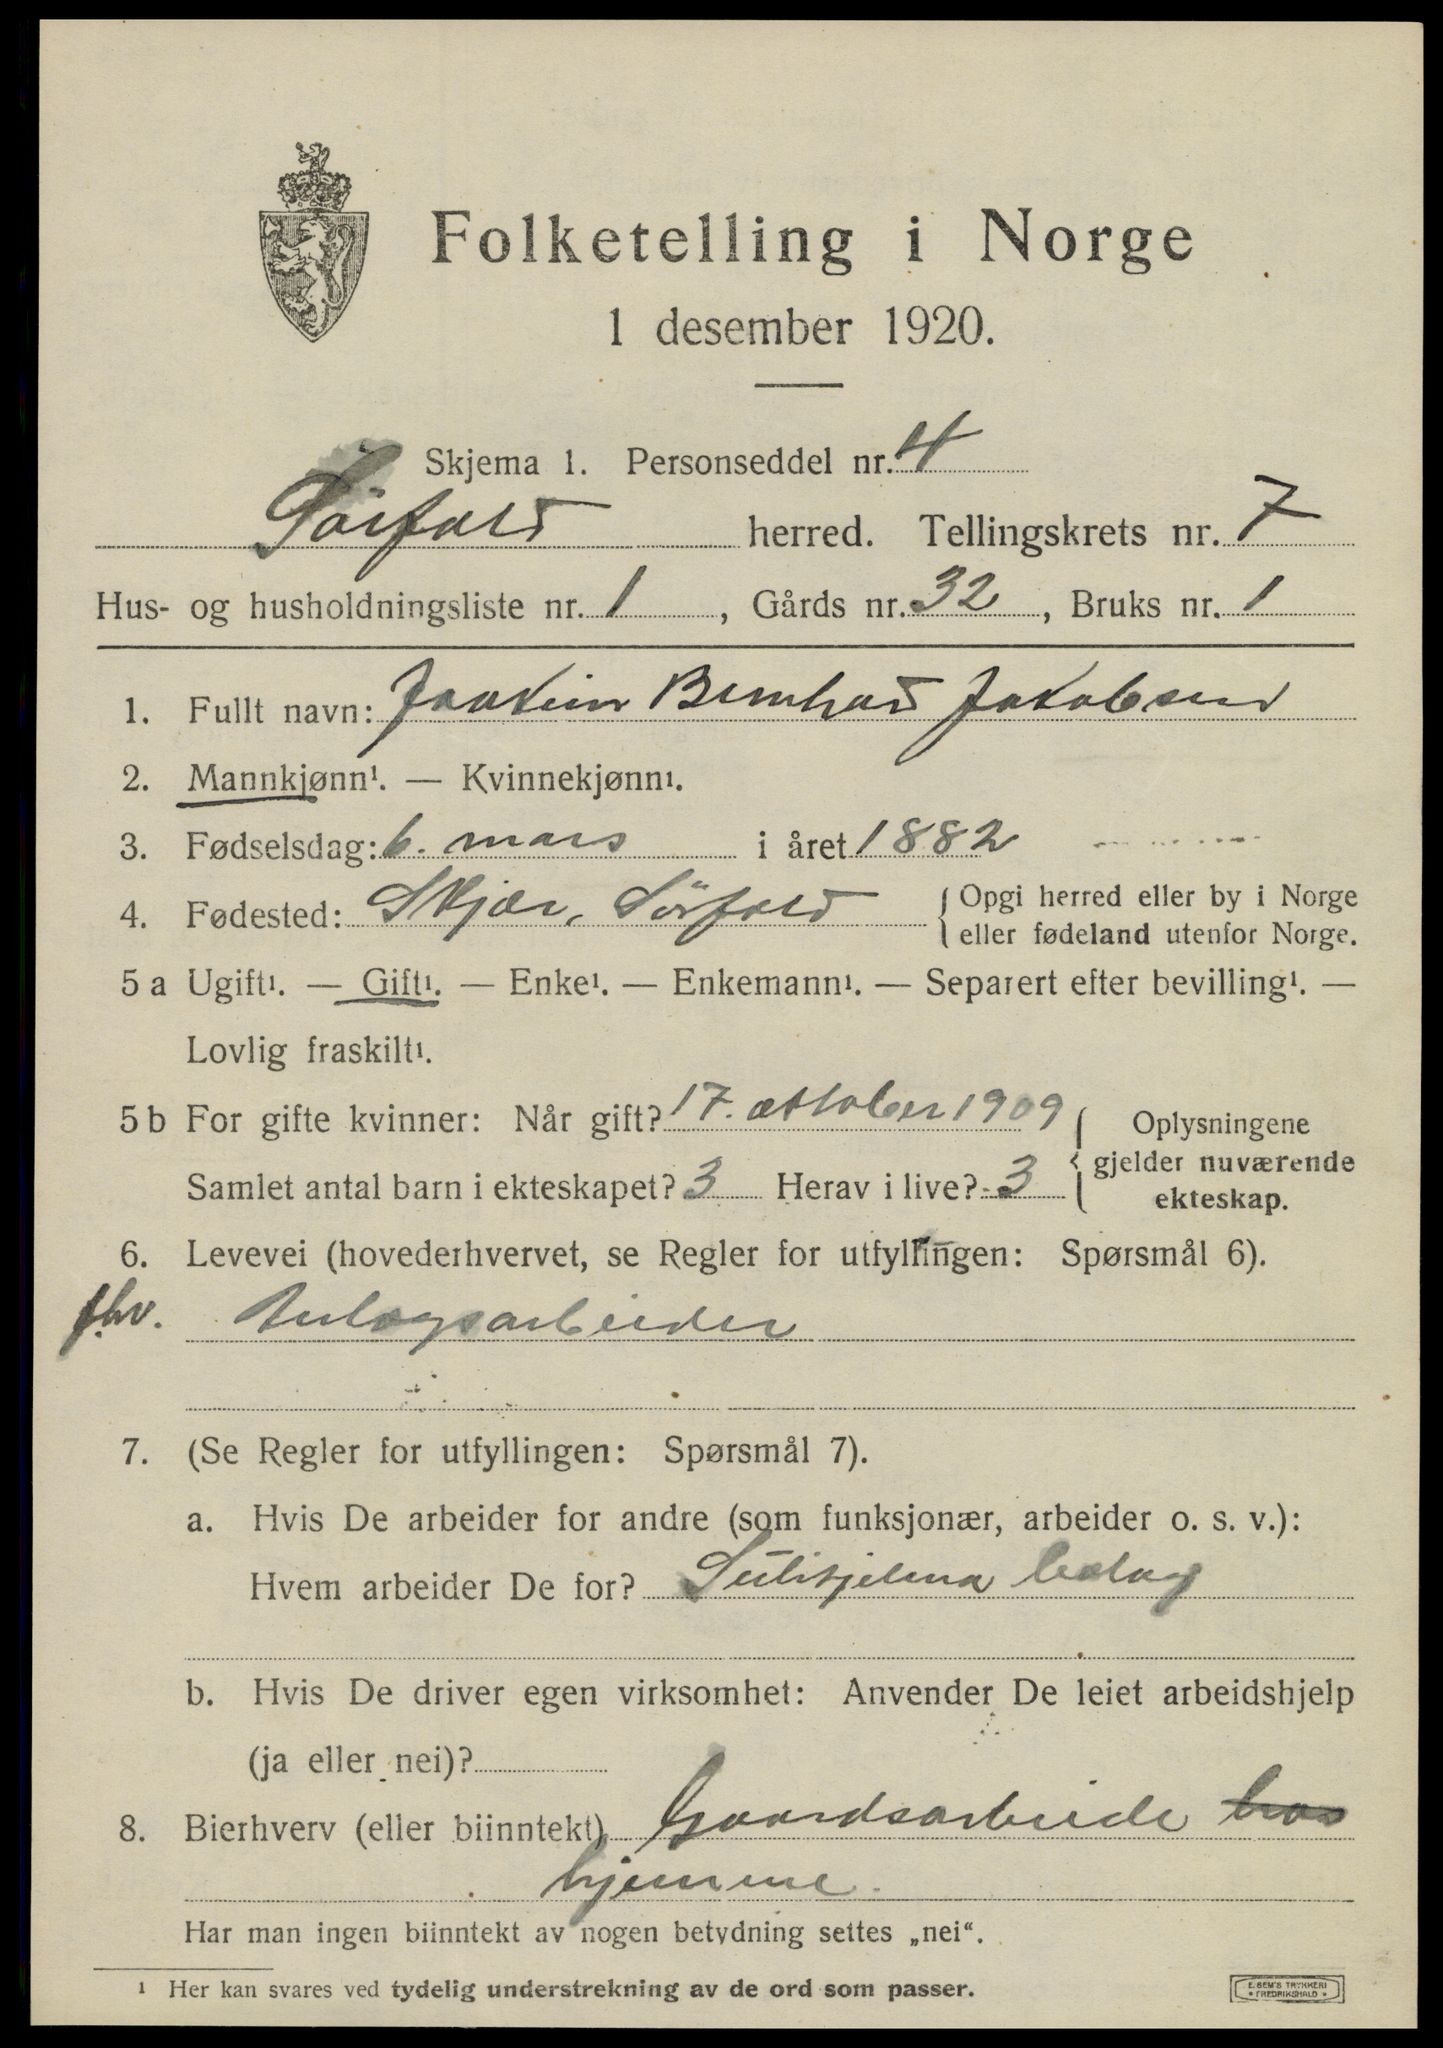 Folketelling i Norge
1 desember 1920.
Skjema 1. Personseddel nr. 4
Sörfold herred. Tellingskrets nr. 7
Hus- og husholdningsliste nr. 1, Gårds nr. 32, Bruks nr. 1
1. Fullt navn: Joakim Bernhard Jakobsen
2. Mannkjønn¹. — Kvinnekjønn¹.
3. Fødselsdag: 6. mars i året 1882
4. Fødested: Skjær, Sörfold { Opgi herred eller by i Norge
eller fødeland utenfor Norge.
5 a Ugift¹. — Gift¹. — Enke¹. — Enkemann¹. — Separert efter bevilling¹. —
Lovlig fraskilt¹.
5 b For gifte kvinner: Når gift? 17. oktober 1909 { Oplysningene
gjelder nuværende
Samlet antal barn i ekteskapet? 3 Herav i live? 3 ekteskap.
6. Levevei (hovederhvervet, se Regler for utfyllingen: Spørsmål 6).
Anlægsarbeider
7. (Se Regler for utfyllingen: Spørsmål 7).
a. Hvis De arbeider for andre (som funksjonær, arbeider o. s. v.):
Hvem arbeider De for? Sulitjelma
b. Hvis De driver egen virksomhet: Anvender De leiet arbeidshjelp
(ja eller nei)?
8. Bierhverv (eller biinntekt) Gaardsarbeide
hjemme.
Har man ingen biinntekt av nogen betydning settes „nei“.
¹ Her kan svares ved tydelig understrekning av de ord som passer.
E. SEM'S TRYKKERI
* FREDRIKSHALD *